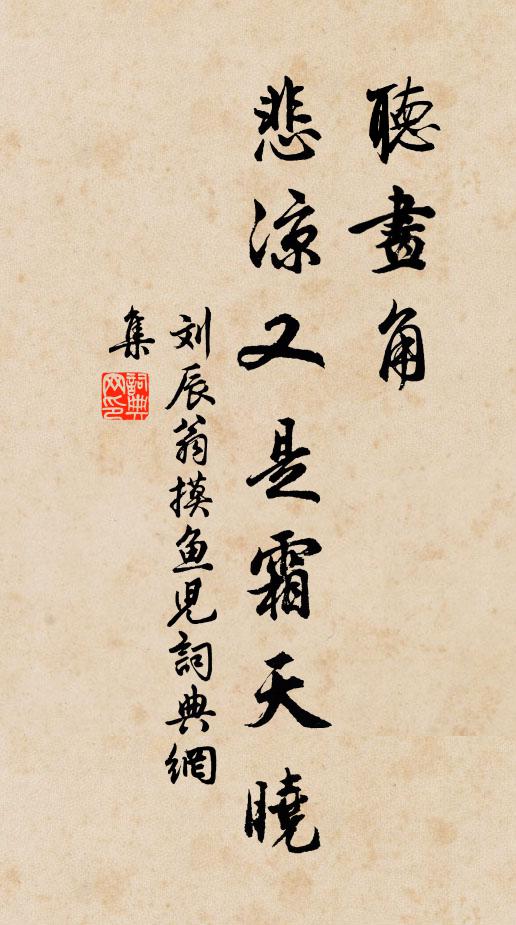 聽畫角
悲涼又是霜天曉
刘辰翁摸鱼児詞典網
集
詞典网印